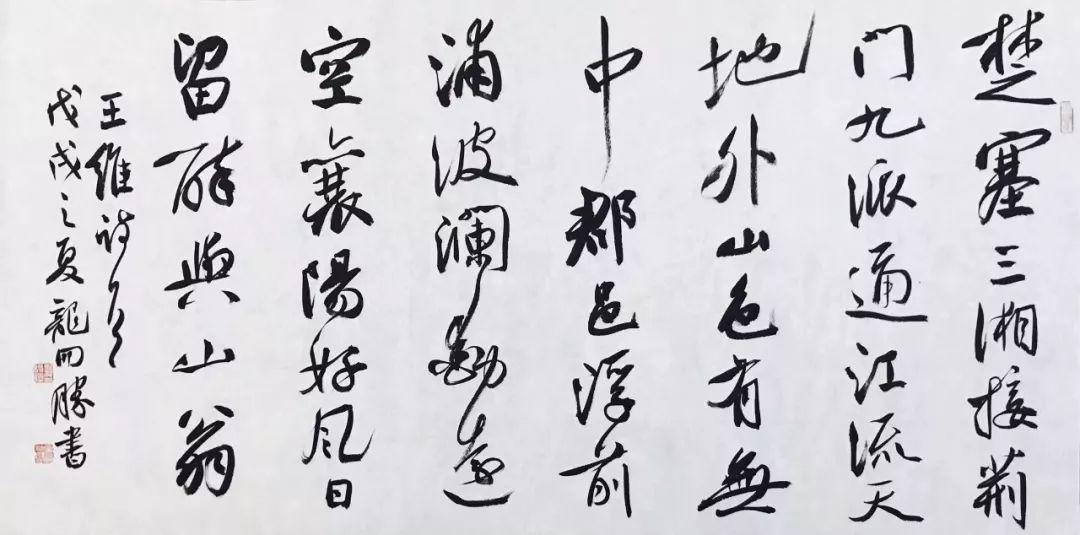 楚塞三湘接荆
门九派通江流天
地外山色有無
中郡邑浮前
浦波澜動遠
空襄陽好风日
留醉與山翁
王維诗一首
戊戌之夏龍四勝書